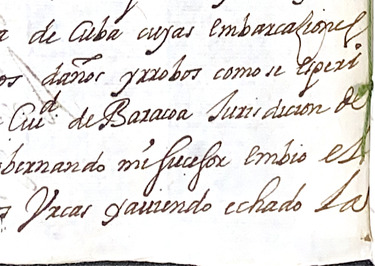 a de Cuba cuyas embarcasiones
os daños yrrobos como se esperi
Ciud de Baracoa Jurisdicion de
bernando mi sucesor embio el
s Urcas yaviendo echado la